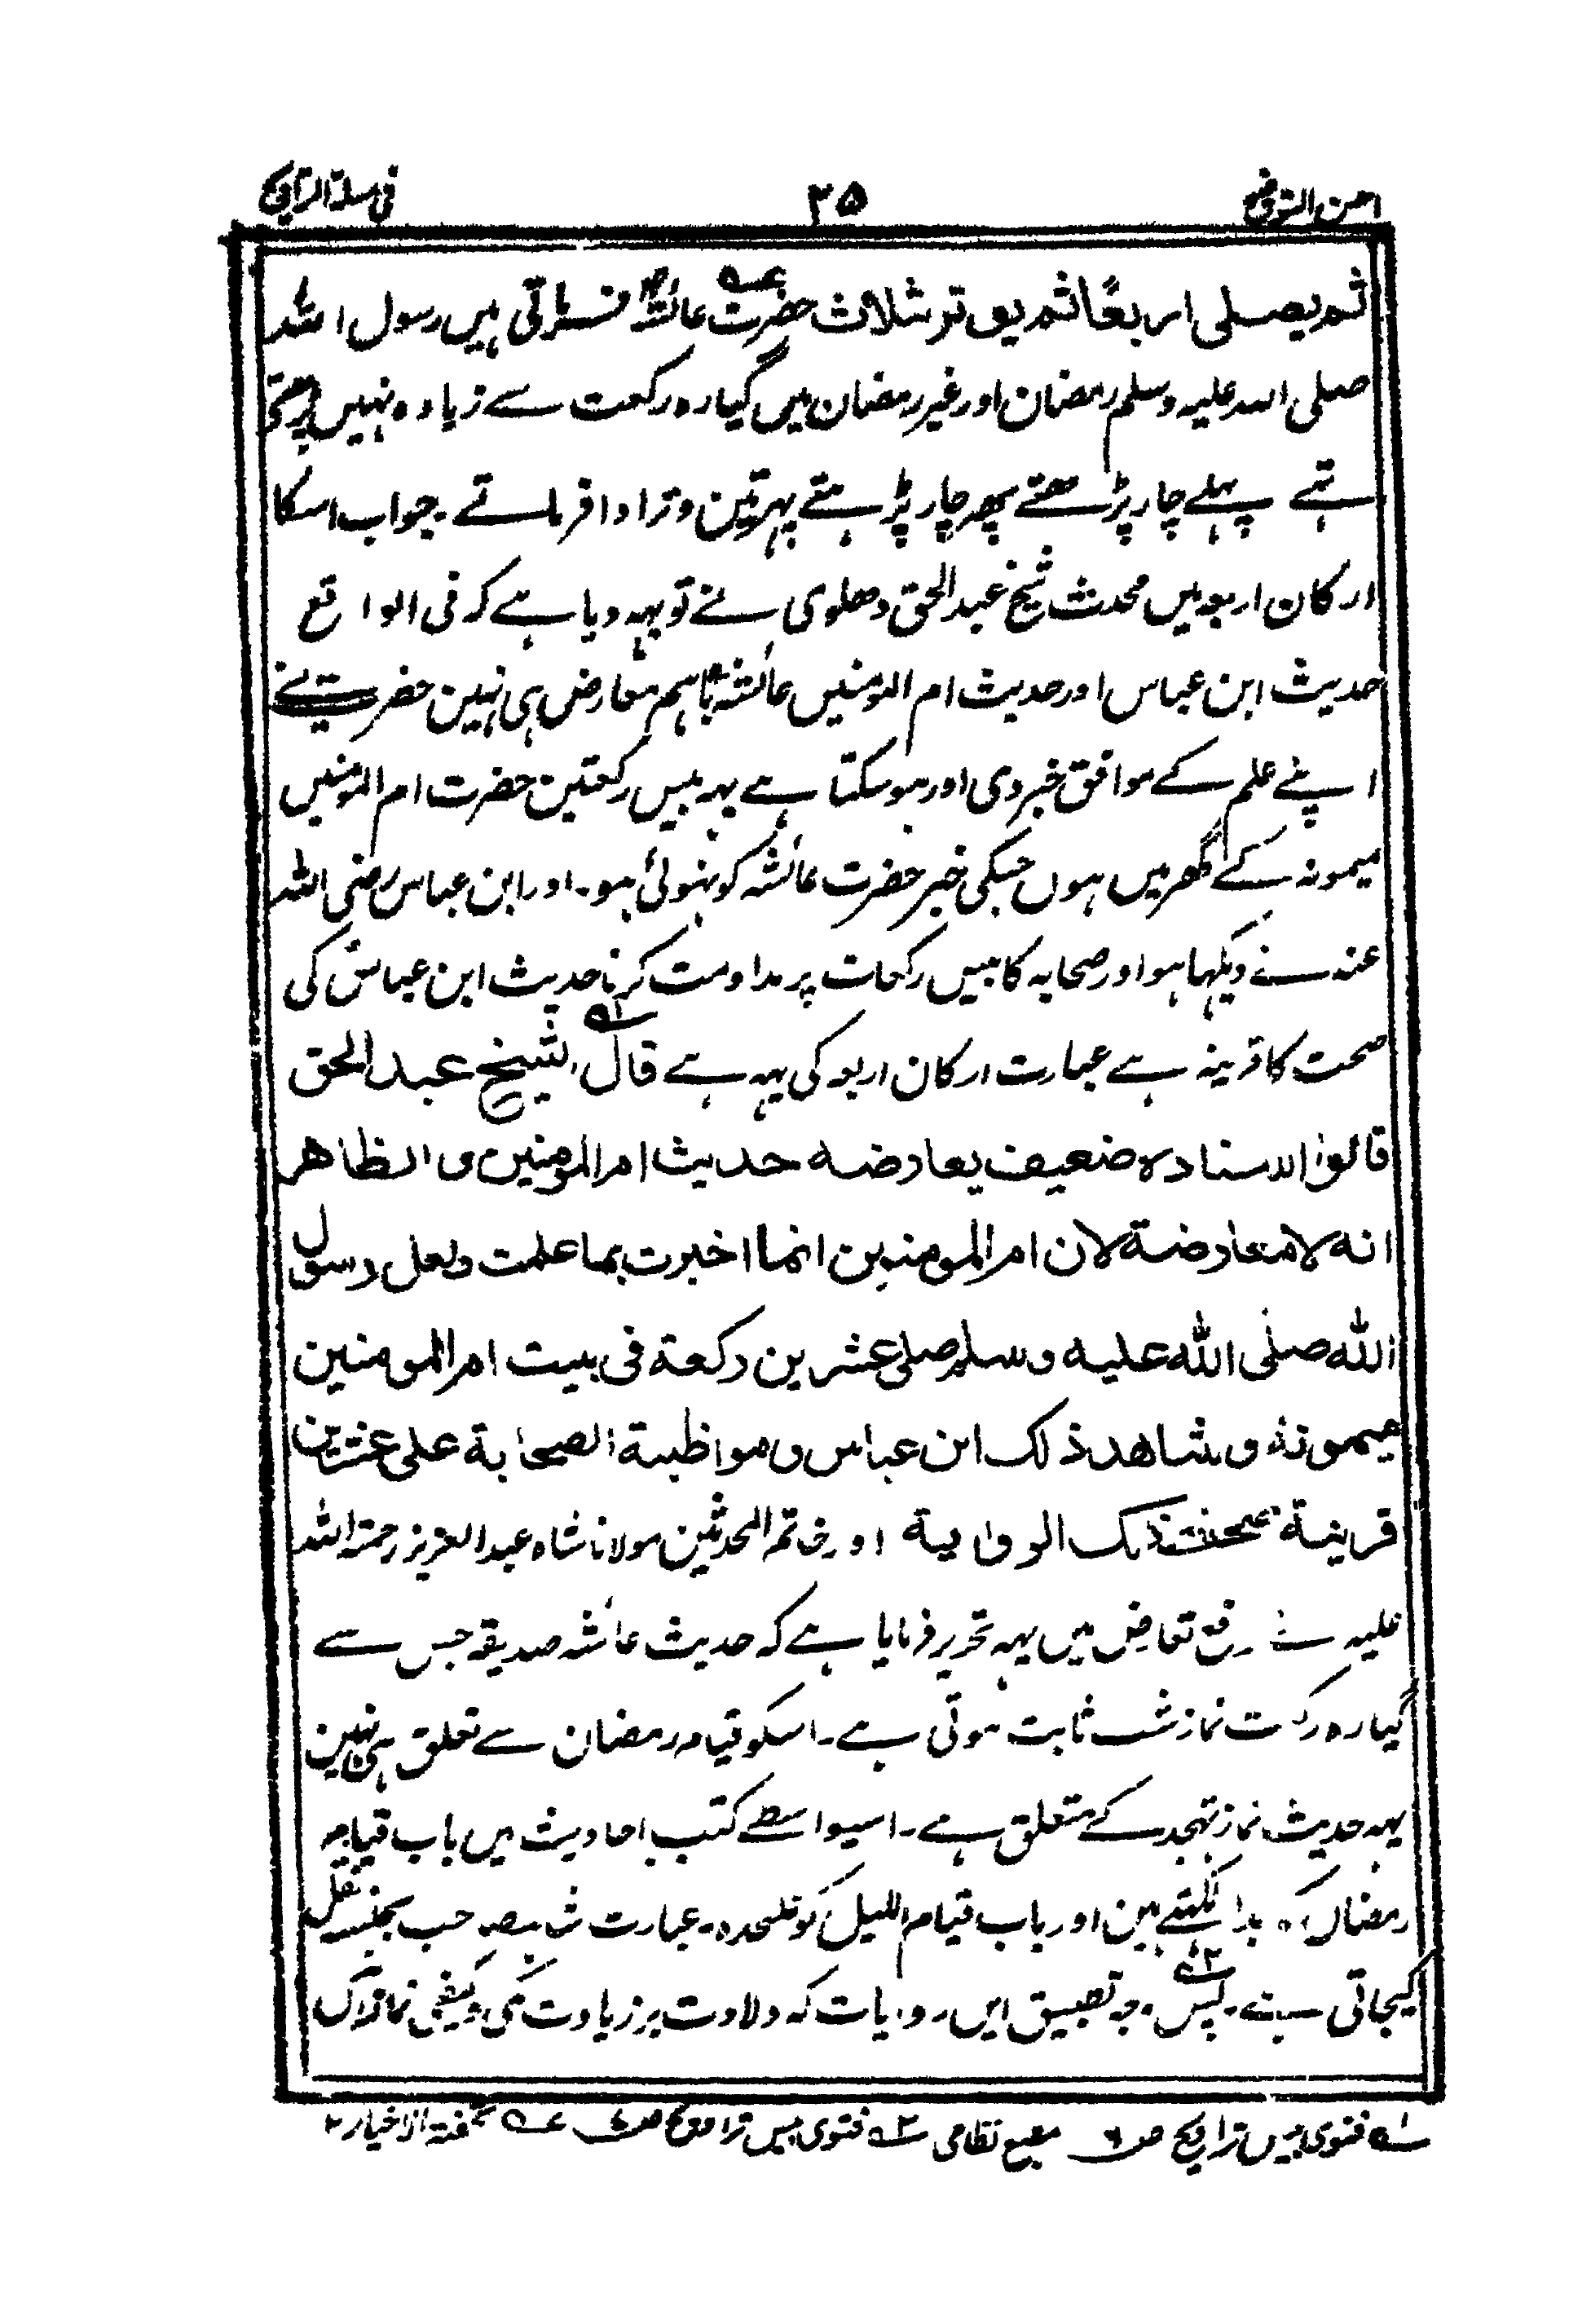 احسن التوضیح ۲۵ فی مسئلۃ التراویح
ثم یصلی اربعًا ثم یوتر ثلاث حضرت عائشہ فرماتی ہیں رسول اللہ
صلی اللہ علیہ وسلم رمضان اور غیر رمضان میں گیارہ رکعت سے زیادہ نہیں پڑھتے
تہے پہلے چار پڑھتے پھر چار پڑہتے پہر تین وتر ادا فرماتے ۔ جواب اسکا
ارکان اربعہ میں محدث شیخ عبدالحق دھلوی نے تو یہہ دیا ہے کہ فی الواقع
حدیث ابن عباس اور حدیث ام المومنیں عائشہ باہم معارض ہی نہین حضرت نے
اپنے علم کے موافق خبر دی اور ہوسکتا ہے یہہ بیس رکعتین حضرت ام المومنیں
میمونہ کے گھر میں ہوں جسکی خبر حضرت عائشہ کو نہوئی ہو ۔ اور ابن عباس رضی اللہ
عنہ نے دیکہا ہو اور صحابہ کا بیس رکعات پر مداومت کرنا حدیث ابن عباس کی
صحت کا قرینہ ہے عبارت ارکان اربعہ کی یہہ ہے قال الشیخ عبد الحق
قالوا اسنادہ ضعیف یعارضہ حدیث ام المومنین والظاھر
انہ لا معارضۃ لان ام المومنین انما اخبرت بما علمت ولعل رسول
اللہ صلی اللہ علیہ وسلم صلی عشرین رکعۃ فی بیت ام المومنین
میمونۃ وشاھد ذلک ابن عباس ومواظبۃ الصحابۃ علی عشرین
قرینۃ صحۃ تلک الروایۃ اور خاتم المحدثین مولانا شاہ عبدالعزیز رحمۃ اللہ
علیہ نے رفع تعارض میں یہہ تحریر فرمایا ہے کہ حدیث عائشہ صدیقہ جس سے
گیارہ رکعت نماز شب ثابت ہوتی ہے ۔ اسکو قیام رمضان سے تعلق ہی نہین
یہہ حدیث نماز تہجد کے متعلق ہے ۔ اسیواسطے کتب احادیث میں باب قیام
رمضان کو جدا لکہتے ہین اور باب قیام اللیل کو علحدہ ۔ عبارت شاہ صاحب بجنسہ نقل
کیجاتی ہے ۔ پس وجہ تطبیق ایں روایات کہ دلالت بر زیادت کمی و کیفی نماز آں
لہ فتوی بیس تراویح ص مطبع نظامی ۲ہ فتوی بیس تراویح ص عہ تحفۃ الاخیار